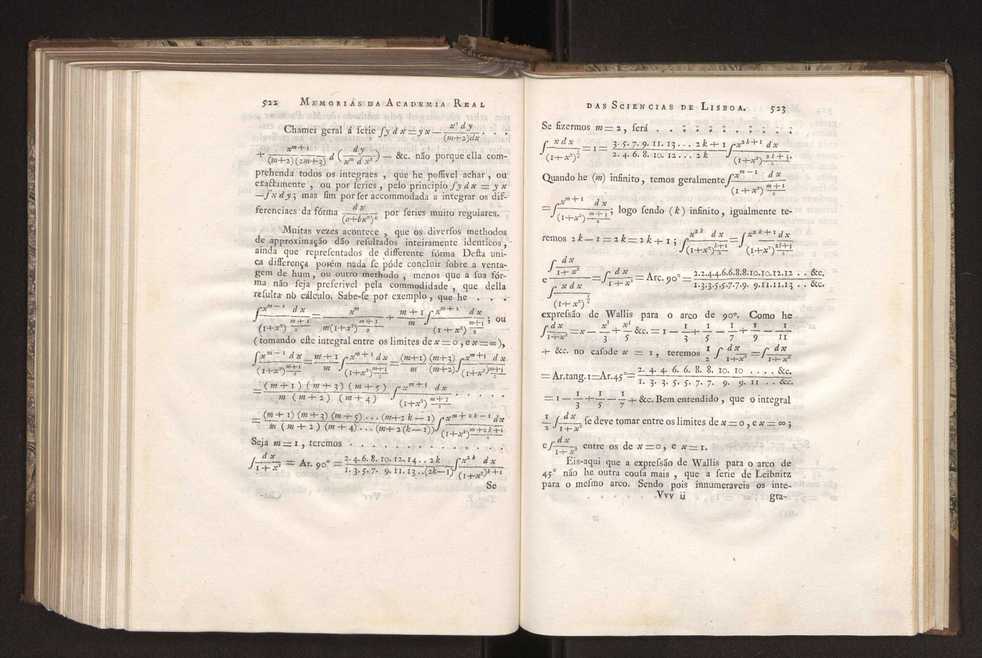 522 MEMORIAS DA ACADEMIA REAL
Chamei geral á serie ∫y d x = y x − x² d y / (m+2)dx . . .
+ x^{m+1} / (m+2)(2m+3) d ( d y / x^m d x² ) — &c. não porque ella com-
prehenda todos os integraes , que he possivel achar , ou
exactamente , ou por series , pelo principio ∫y d x = y x
—∫x d y ; mas sim por ser accommodada a integrar os dif-
ferenciaes da fórma d x / (a+bx^n) por series muito regulares.
Muitas vezes acontece , que os diversos methodos
de approximação dão resultados inteiramente identicos ,
ainda que representados de differente fórma Desta uni-
ca differença porém nada se póde concluir sobre a venta-
gem de hum , ou outro methodo , menos que a sua fór-
ma não seja preferivel pela commodidade , que della
resulta no cálculo. Sabe-se por exemplo , que he . . .
∫ x^{m−1} d x / (1+x²)^{(m+1)/2} = x^m / m(1+x²)^{(m+1)/2} + m+1 / m ∫ x^{m+1} d x / (1+x²)^{(m+1)/2} ; ou
( tomando este integral entre os limites de x = 0 , e x = ∞ ),
∫ x^{m−1} d x / (1+x²)^{(m+1)/2} = m+1 / m ∫ x^{m+1} d x / (1+x²)^{(m+1)/2} = (m+1) (m+3) / m (m+2) ∫ x^{m+1} d x / (1+x²)^{(m+1)/2}
= (m+1) (m+3) (m+5) / m (m+2) (m+4) ∫ x^{m+1} d x / (1+x²)^{(m+1)/2} . . . . .
= (m+1) (m+3) (m+5) . . . (m+2 k−1) / m (m+2) (m+4) . . . (m+2(k−1)) ∫ x^{m+2k−1} d x / (1+x²)^{(m+2k+1)/2}
Seja m = 1 , teremos . . . . . . . . . . .
∫ d x / 1+x² = Ar. 90° = 2. 4. 6. 8. 10. 12. 14 . . 2 k / 1. 3. 5. 7. 9. 11. 13 . . (2k−1) ∫ x^{2k} d x / (1+x²)^{k+1}
Se
DAS SCIENCIAS DE LISBOA. 523
Se fizermos m = 2 , será . . . . . . . . . .
∫ x d x / (1+x²)^{3/2} = 1 = 3. 5. 7. 9. 11. 13 . . . 2 k + 1 / 2. 4. 6. 8. 10. 12 . . . 2 k ∫ x^{2k+1} d x / (1+x²)^{(2k+3)/2}.
Quando he (m) infinito , temos geralmente ∫ x^{m−1} d x / (1+x²)^{(m+1)/2}
= ∫ x^{m+1} d x / (1+x²)^{(m+1)/2} ; logo sendo (k) infinito , igualmente te-
remos 2 k − 1 = 2 k = 2 k + 1 ; ∫ x^{2k} d x / (1+x²)^{k+1} = ∫ x^{2k+1} d x / (1+x²)^{k+1}
e ∫ d x / 1+x² / ∫ x d x / (1+x²)^{3/2} = ∫ d x / 1+x² = Arc. 90° = 2.2.4.4.6.6.8.8.10.10.12.12 . . &c. / 1.3.3.5.5.7.7.9. 9.11.11.13 . . &c.
expressão de Wallis para o arco de 90°. Como he
∫ d x / 1+x² = x − x³/3 + x⁵/5 &c. = 1 − 1/3 + 1/5 − 1/7 + 1/9 − 1/11
+ &c. no caso de x = 1 , teremos 1/2 ∫ d x / 1+x² = ∫ d x / 1+x²
= Ar. tang. 1 = Ar. 45° = 2. 4. 4. 6. 6. 8. 8. 10. 10 . . . . &c. / 1. 3. 3. 5. 5. 7. 7. 9. 9. 11 . . &c.
= 1 − 1/3 + 1/5 − 1/7 + &c. Bem entendido , que o integral
1/2 ∫ d x / 1+x² se deve tomar entre os limites de x = 0 , e x = ∞ ;
e ∫ d x / 1+x² entre os de x = 0 , e x = 1.
Eis-aqui que a expressão de Wallis para o arco de
45° não he outra cousa mais , que a serie de Leibnitz
para o mesmo arco. Sendo pois innumeraveis os inte-
Vvv ii gra-